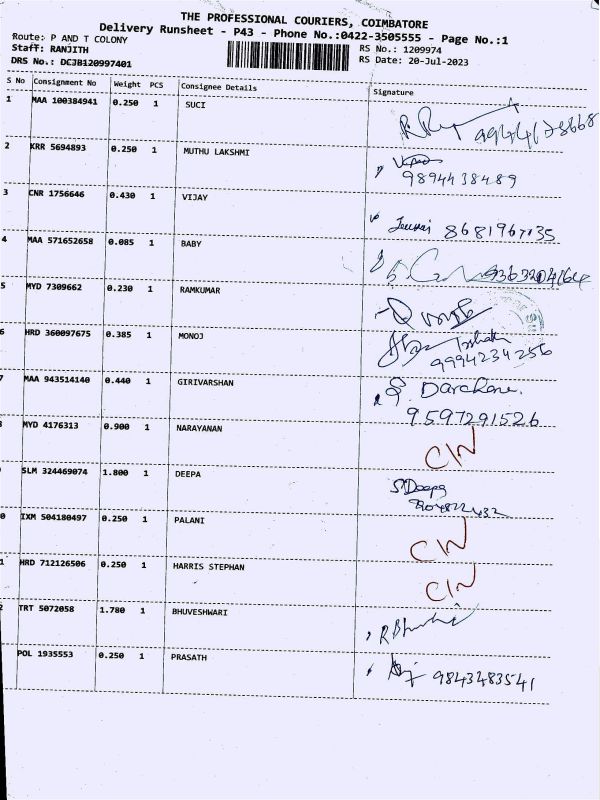 THE PROFESSIONAL COURIERS, COIMBATORE
Delivery Runsheet - P43 - Phone No.:0422-3505555 - Page No.:1
Route: P AND T COLONY
Staff: RANJITH
DRS No.: DCJB120997401
RS No.: 1209974
RS Date: 20-Jul-2023
S No Consignment No Weight PCS Consignee Details Signature
1 MAA 100384941 0.250 1 SUCI
2 KRR 5694893 0.250 1 MUTHU LAKSHMI
9894438489
3 CNR 1756646 0.430 1 VIJAY
8681967135
4 MAA 571652658 0.085 1 BABY
5 MYD 7309662 0.230 1 RAMKUMAR
6 HRD 360097675 0.385 1 MONOJ
9994234256
7 MAA 943514140 0.440 1 GIRIVARSHAN
9597291526
MYD 4176313 0.900 1 NARAYANAN
CW
SLM 324469074 1.800 1 DEEPA
S Deepa
0 IXM 504180497 0.250 1 PALANI
CW
1 HRD 712126506 0.250 1 HARRIS STEPHAN
CW
2 TRT 5072058 1.780 1 BHUVESHWARI
POL 1935553 0.250 1 PRASATH
9843483541